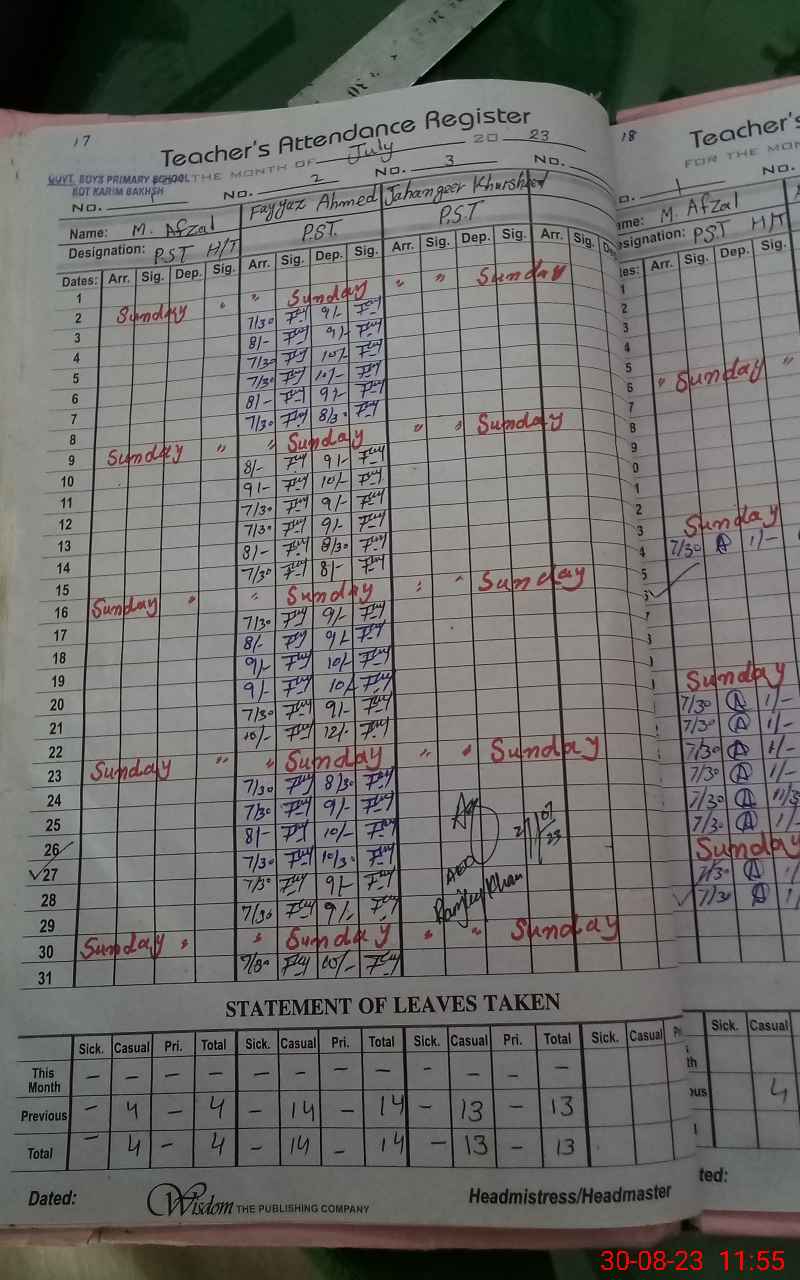 17
Teacher's Attendance Register
THE MONTH OF July 20 23
GOVT. BOYS PRIMARY SCHOOL
KOT KARIM BAKHSH
No. 1 No. 2 No. 3 No.
Name: M. Afzal Fayyaz Ahmed Jahangeer Khurshed
Designation: PST H/T P.S.T. P.S.T
Dates: Arr. Sig. Dep. Sig. Arr. Sig. Dep. Sig. Arr. Sig. Dep. Sig. Arr. Sig.
1
2 Sunday " " Sunday " " Sunday
3 7/30 9/-
4 8/- 9/-
5 7/30 10/-
6 7/30 10/-
7 8/- 9/-
8 7/30 8/30
9 Sunday " " Sunday " " Sunday
10 8/- 9/-
11 9/- 10/-
12 7/30 9/-
13 7/30 9/-
14 8/- 8/30
15 7/30 8/-
16 Sunday " " Sunday " " Sunday
17 7/30 9/-
18 8/- 9/-
19 9/- 10/-
20 9/- 10/-
21 7/30 9/-
22 10/- 12/-
23 Sunday " " Sunday " " Sunday
24 7/30 8/30
25 7/30 9/-
26 8/- 10/-
27 7/30 10/30
28 7/30 9/-
29 7/30 9/-
30 Sunday " " Sunday " " Sunday
31 7/30 10/-
AEO
STATEMENT OF LEAVES TAKEN
Sick. Casual Pri. Total Sick. Casual Pri. Total Sick. Casual Pri. Total Sick. Casual
This Month – – – – – – – – – – – –
Previous – 4 – 4 – 14 – 14 – 13 – 13
Total – 4 – 4 – 14 – 14 – 13 – 13
Dated: Wisdom THE PUBLISHING COMPANY Headmistress/Headmaster
18
Teacher's
FOR THE MON
No. 1 No.
M. Afzal
PST H/T
Arr. Sig. Dep. Sig.
" Sunday "
Sunday
7/30 A 1/-
Sunday
7/30 A 1/-
7/30 A 1/-
7/30 A 1/-
7/30 A 1/-
7/30 A 11/3
7/30 A 1/-
Sunday
7/30 A
7/30 A
Sick. Casual
4
30-08-23 11:55